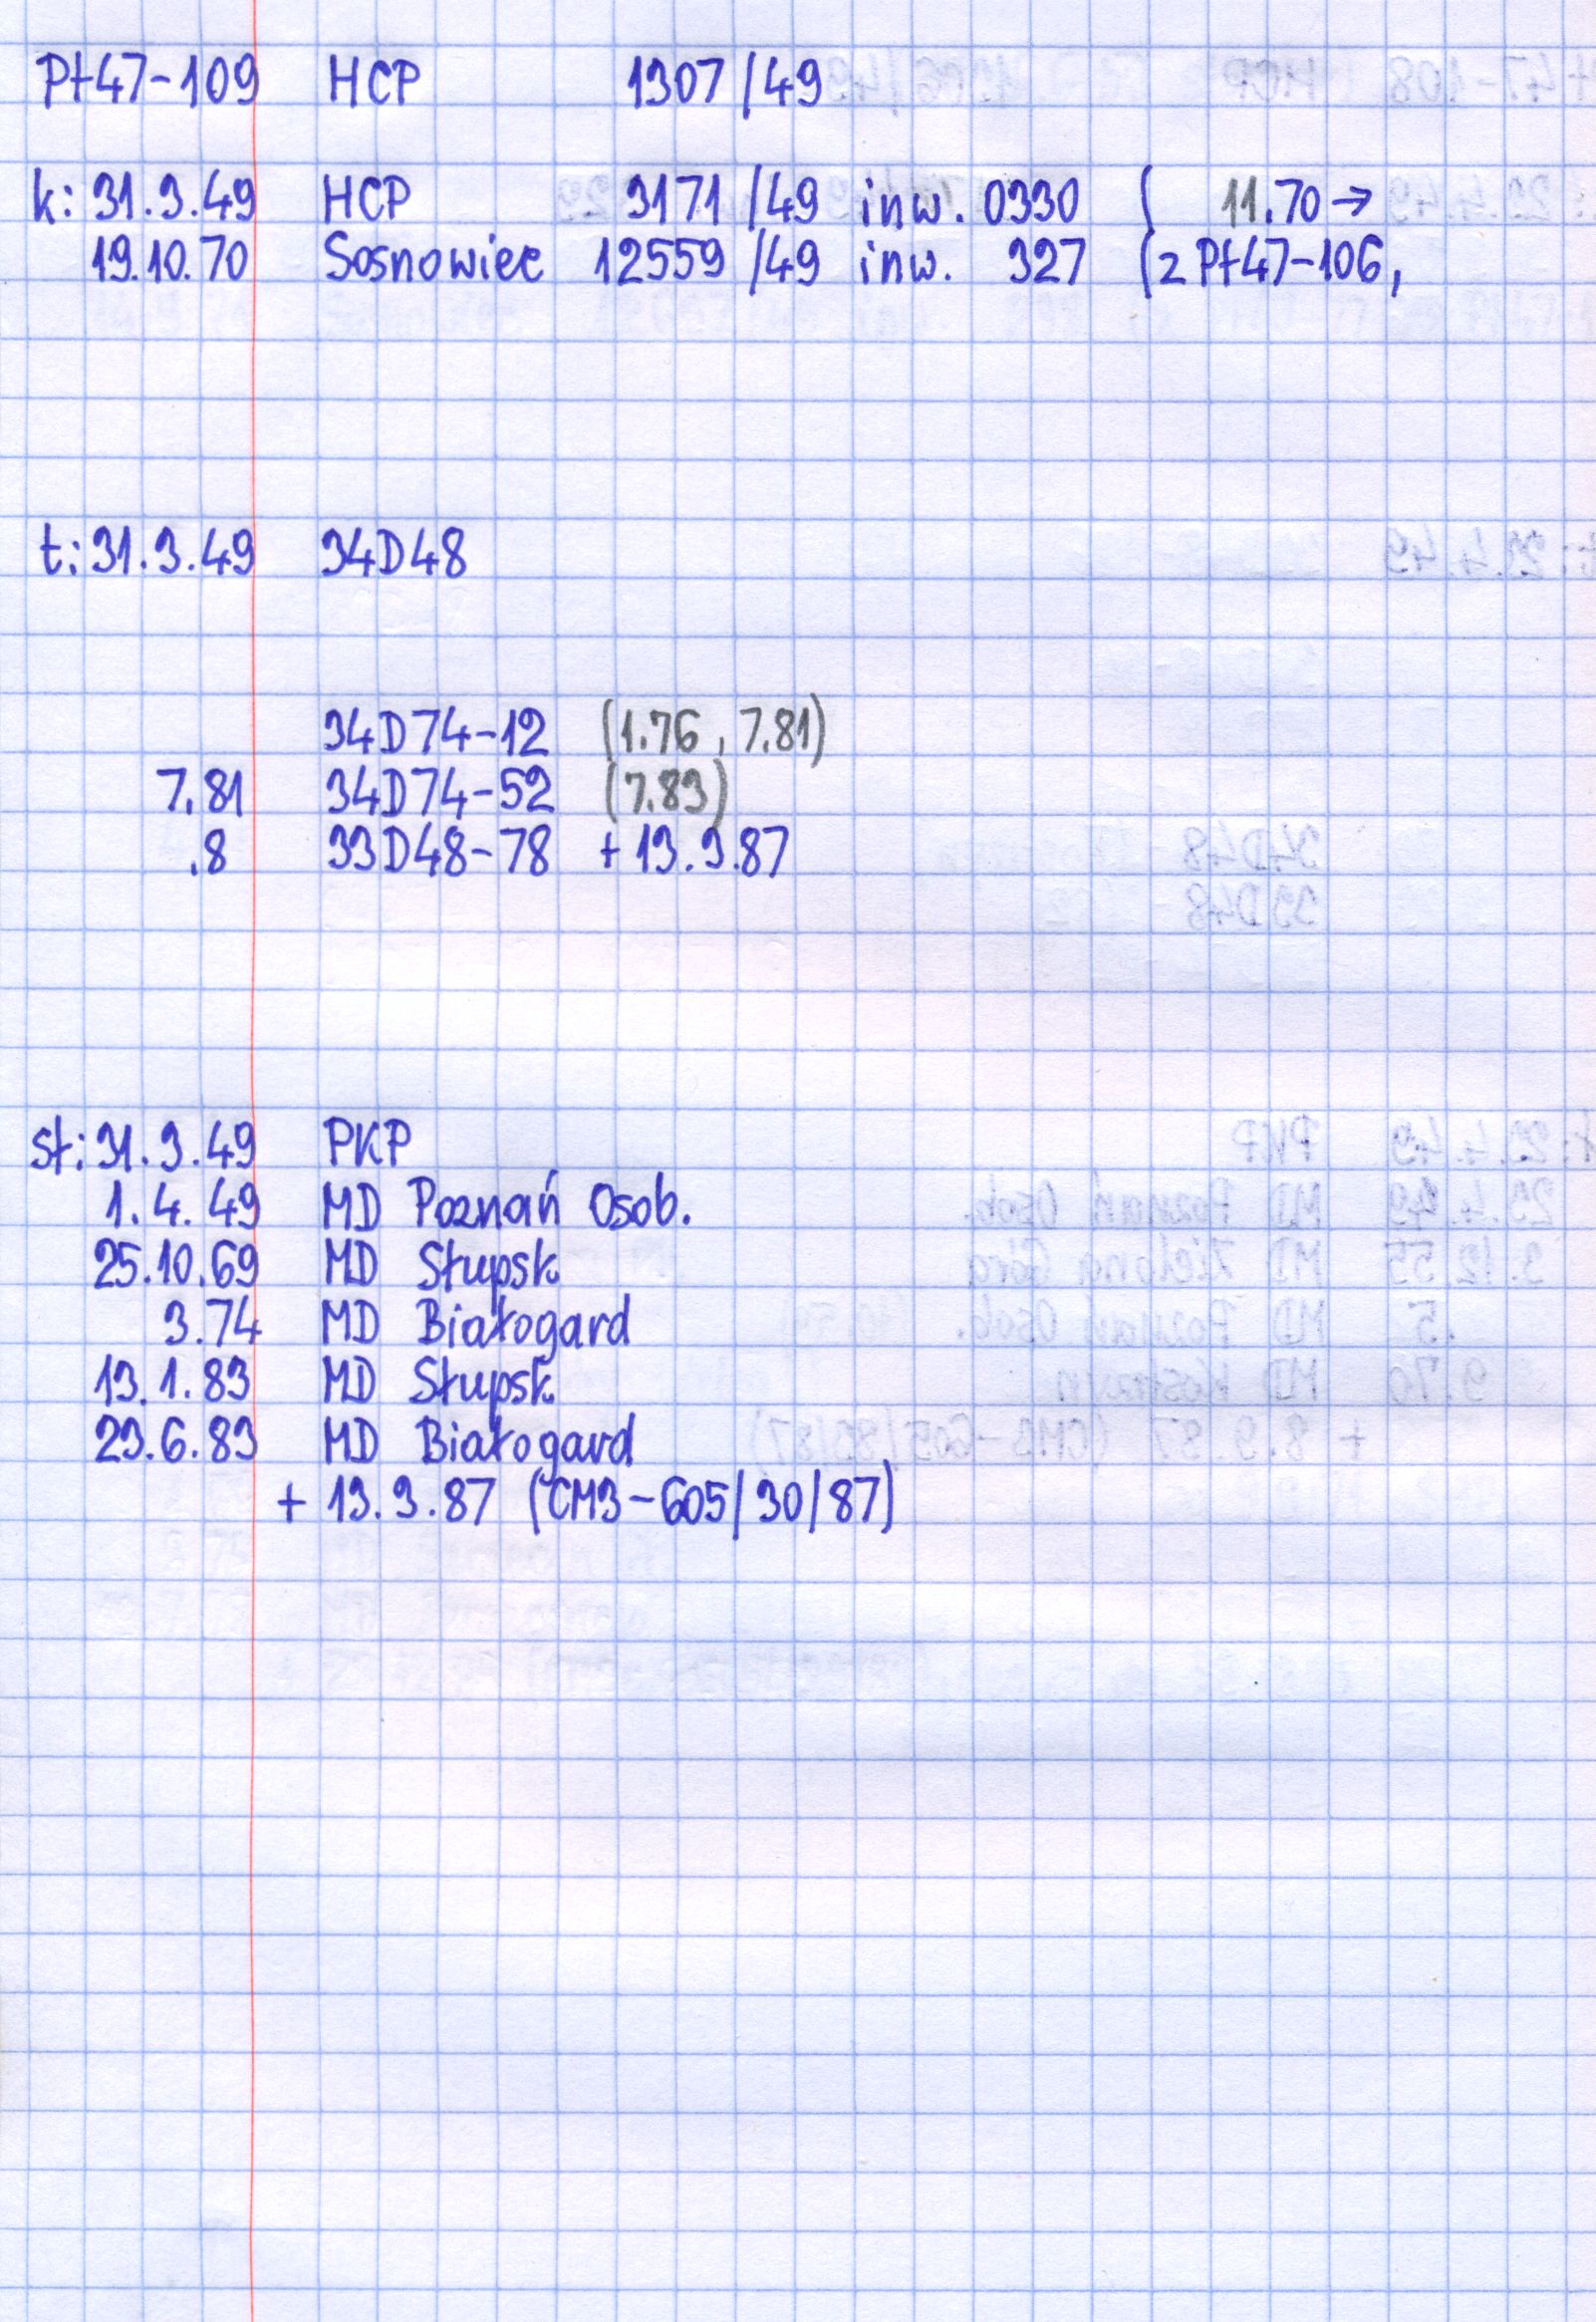 Pt47-109 HCP 1307/49
k: 31.3.49 HCP 3171/49 inw. 0330 ( 11.70→
19.10.70 Sosnowiec 12559/49 inw. 327 (z Pt47-106,
t: 31.3.49 34D48
34D74-12 (1.76, 7.81)
7.81 34D74-52 (7.83)
.8 33D48-78 + 13.3.87
st: 31.3.49 PKP
1.4.49 MD Poznań Osob.
25.10.69 MD Słupsk
3.74 MD Białogard
13.1.83 MD Słupsk
23.6.83 MD Białogard
+ 13.3.87 (CM3-605/30/87)